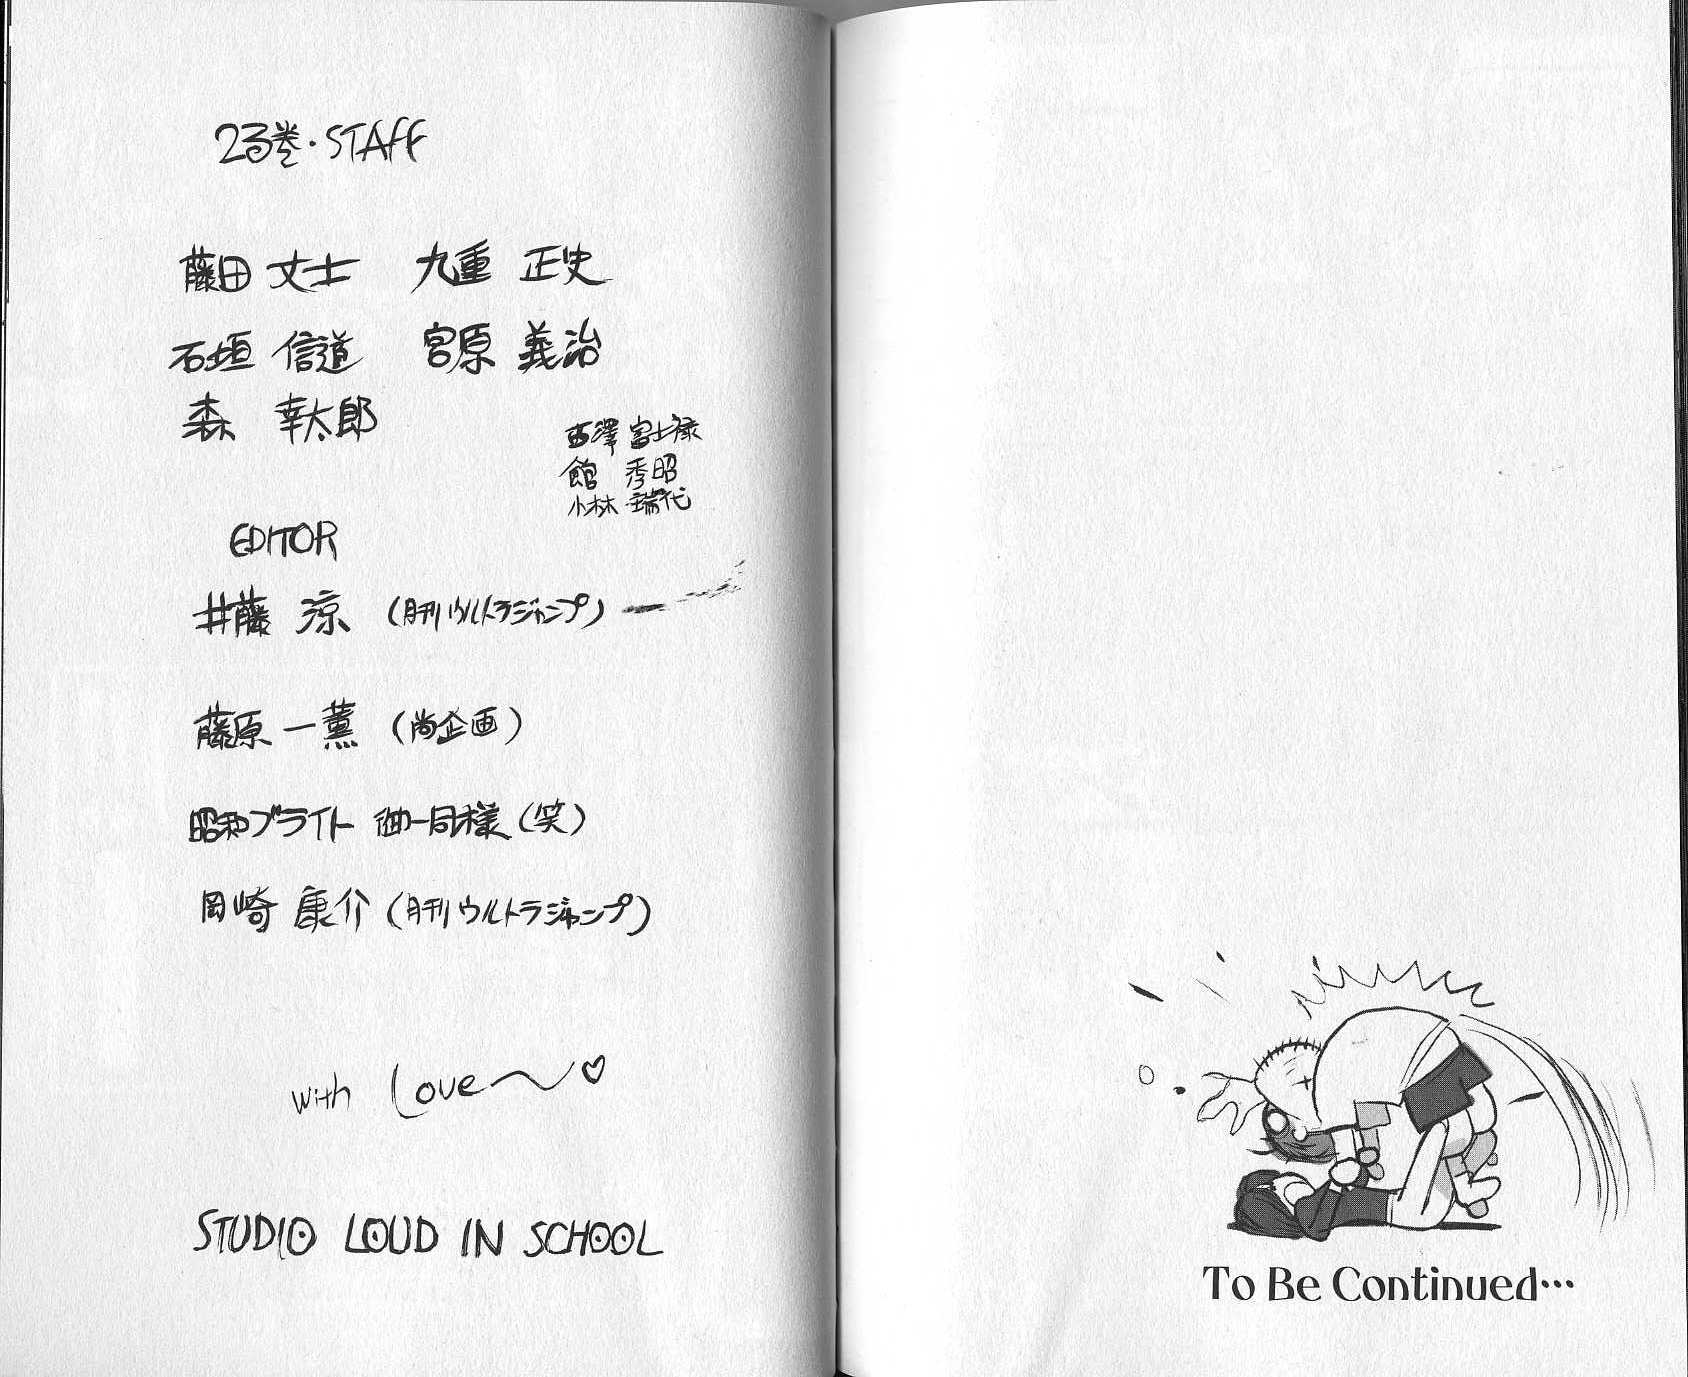 23巻・STAFF
藤田 丈士 九重 正史
石垣 信道 宮原 義治
森 幸太郎
西澤 富士禄
館 秀昭
小林 瑞代
EDITOR
井藤 涼 (月刊ウルトラジャンプ)
藤原 一薫 (尚企画)
昭和ブライト 御一同様 (笑)
岡崎 康介 (月刊ウルトラジャンプ)
with Love〜♡
STUDIO LOUD IN SCHOOL
To Be Continued…